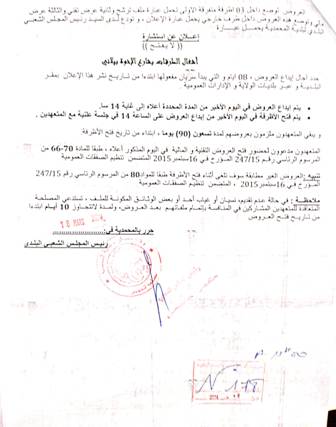 العروض توضع داخل 03 أظرفة متفرقة الأولى تحمل عبارة ملف ترشح وثانية عرض تقني والثالثة عرض
مالي وتوضع هذه العروض داخل ظرف خارجي يحمل عبارة الإعلان ، و تودع لدى السيد رئيس المجلس الشعبي
البلدي لبلدية المحمدية يحمل عبارة
إعلان عن استشارة
(( لا يفتح ))
أشغال الطرقات بشارع الإخوة بولادي
حدد أجال ايداع العروض ، 08 أيام و التي يبدأ سريان مفعولها ابتدءا من تاريخ نشر هذا الإعلان بمقر
البلدية و عبر بلديات الولاية و الإدارات العمومية
• يتم ايداع العروض في اليوم الأخير من المدة المحددة أعلاه إلى غاية 14 سا.
• يتم فتح الأظرفة في اليوم الأخير من إيداع العروض على الساعة 14 في جلسة علنية مع المتعهدين .
و يبقى المتعهدين ملزمون بعروضهم لمدة تسعون (90) يوما ، ابتداء من تاريخ فتح الأظرفة
المتعهدون مدعوون لحضور فتح العروض التقنية و المالية في اليوم المذكور أعلاه ، طبقا للمادة 66-70 من
المرسوم الرئاسي رقم 247/15 المؤرخ في 16سبتمبر2015 المتضمن تنظيم الصفقات العمومية
تنبيه :العروض الغير مطابقة سوف تلغى أثناء فتح الأظرفة طبقا للمادة80 من المرسوم الرئاسي رقم 247/15
المؤرخ في 16سبتمبر2015 ، المتضمن تنظيم الصفقات العمومية
ملاحظة : في حالة عدم تقديم، نسيان أو غياب أحد أو بعض الوثائق المكونة للملف ، تستدعي المصلحة
المتعاقدة المتعهدين المشاركين في المنافسة بإتمام ملفاتهم بعد العروض، ولمدة لاتتجاوز 10 أيام ابتدءا
من تاريخ فتح العروض
حرر بالمحمدية في:
رئيس المجلس الشعبي البلدي